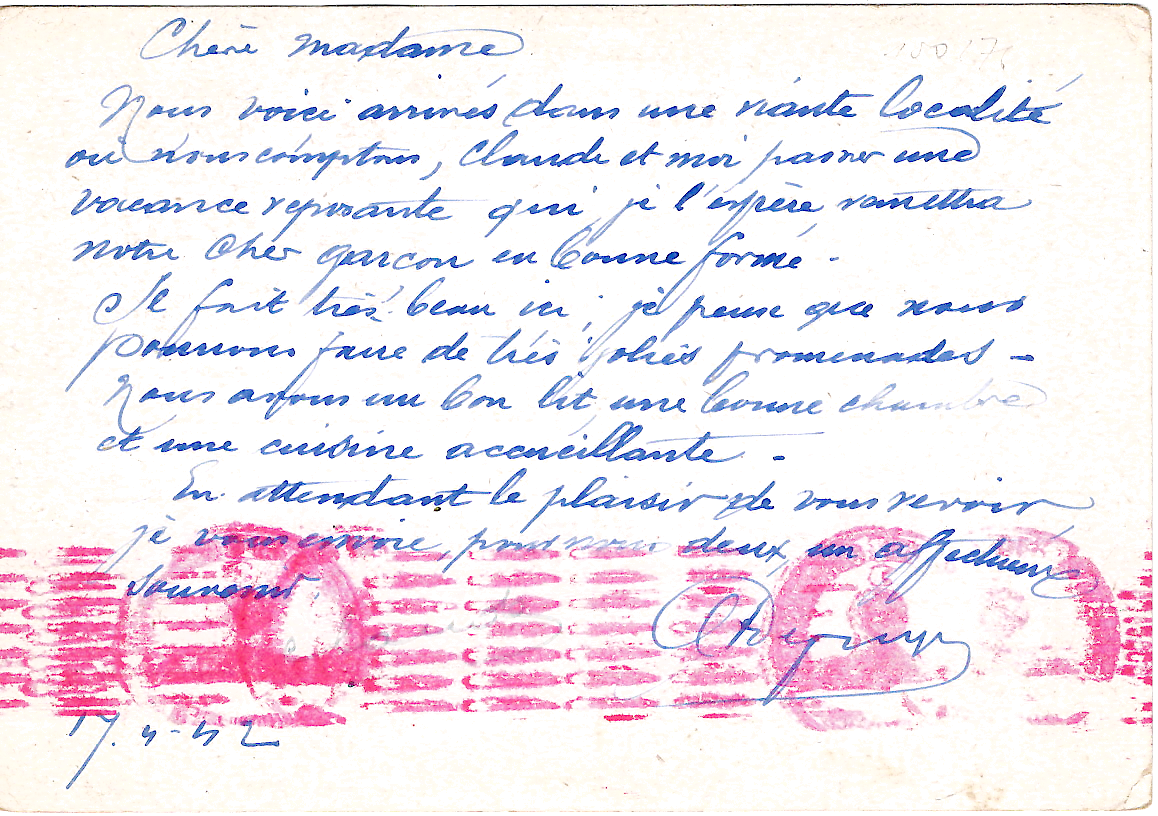 Chère madame
Nous voici arrivés dans une riante localité
où nous comptons, Claude et moi passer une
vacance reposante qui je l'espère remettra
notre cher garçon en bonne forme -
Il fait très beau ici, je pense que nous
pourrons faire de très jolies promenades -
Nous avons un bon lit, une bonne chambre
et une cuisine accueillante -
En attendant le plaisir de vous revoir
je vous envoie, pour nous deux, un affectueux
souvenir.
17.4-42